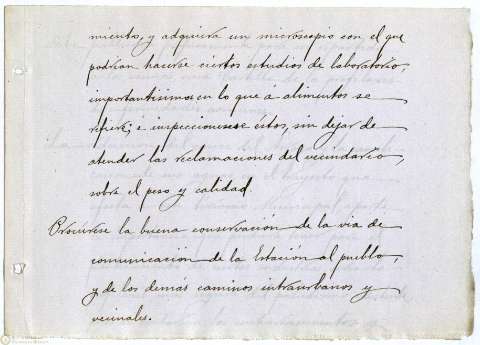 miento, y adquirirá un microscopio con el que
podrían hacerse ciertos estudios de laboratorio,
importantísimos en lo que á alimentos se
refiere; é inspecciónense éstos, sin dejar de
atender las reclamaciones del vecindario,
sobre el peso y calidad.
Procúrese la buena conservación de la via de
comunicación de la Estación al pueblo,
y de los demás caminos intraurbanos y
vecinales.